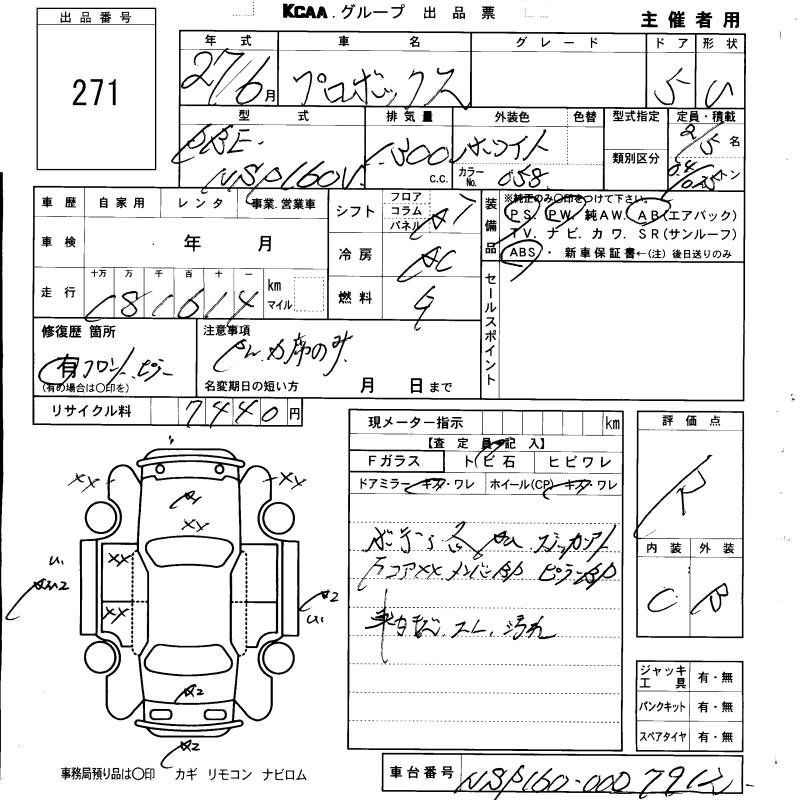 KCAA.グループ 出品票
主催者用
出品番号
271
年式 車名 グレード ドア 形状
27/6月 プロボックス 5 V
型式 排気量 外装色 色替 型式指定 定員・積載
DBE- 1300 ホワイト 2/5名
NSP160V c.c. カラーNo. 058 類別区分 0.4/0.25トン
車歴 自家用 レンタ 事業.営業車
シフト フロア コラム パネル AT
装備品 ※純正のみ○印をつけて下さい。
PS. PW. 純AW. AB(エアバック)
TV. ナビ. カワ. SR(サンルーフ)
ABS・ 新車保証書←(注)後日送りのみ
車検 年 月
冷房 AC
走行 十万 万 千 百 十 一 km マイル
181614
燃料 G
セールスポイント
修復歴 箇所
有 フロント、ピラー
(有の場合は○印を)
注意事項
席のみ
名変期日の短い方 月 日まで
リサイクル料 7440円
現メーター指示 km
【査定員記入】
Fガラス トビ石 ヒビワレ
ドアミラー キズ・ワレ ホイール(CP) キズ・ワレ
FコアXX メンバー ピラー
スレ、汚れ
評価点
R
内装 外装
C B
ジャッキ工具 有・無
パンクキット 有・無
スペアタイヤ 有・無
XX XX
A1
XX
XX
XX
U1
A2
U1
A2
A2
事務局預り品は○印 カギ リモコン ナビロム
車台番号 NSP160-000